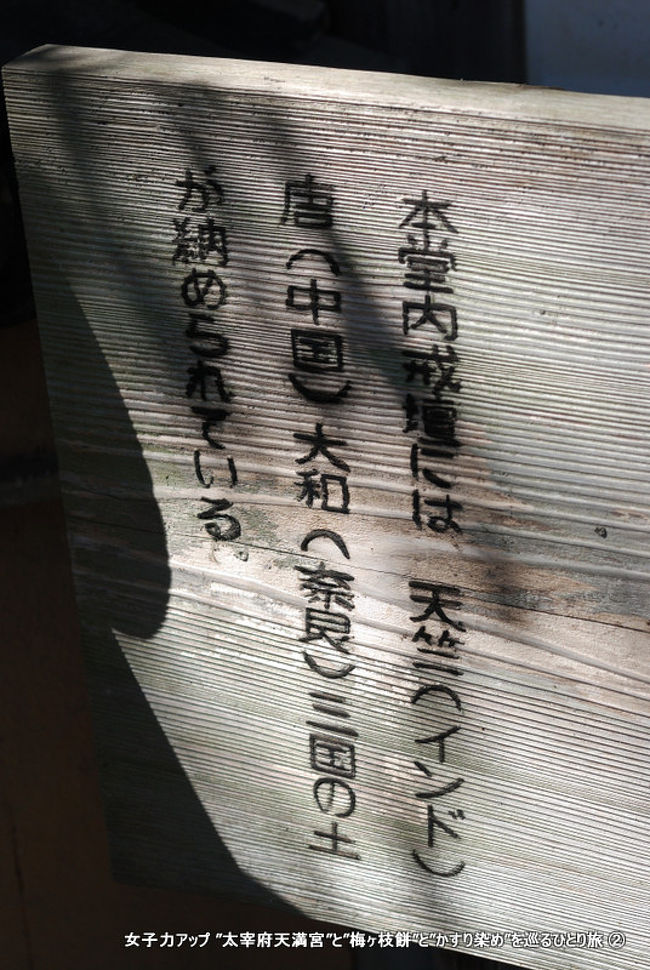 本堂内戒壇には 天竺(インド)
唐(中国)大和(奈良)三国の土
が納められている。
女子力アップ "太宰府天満宮"と"梅ヶ枝餅"と"かすり染め"を巡るひとり旅 ②